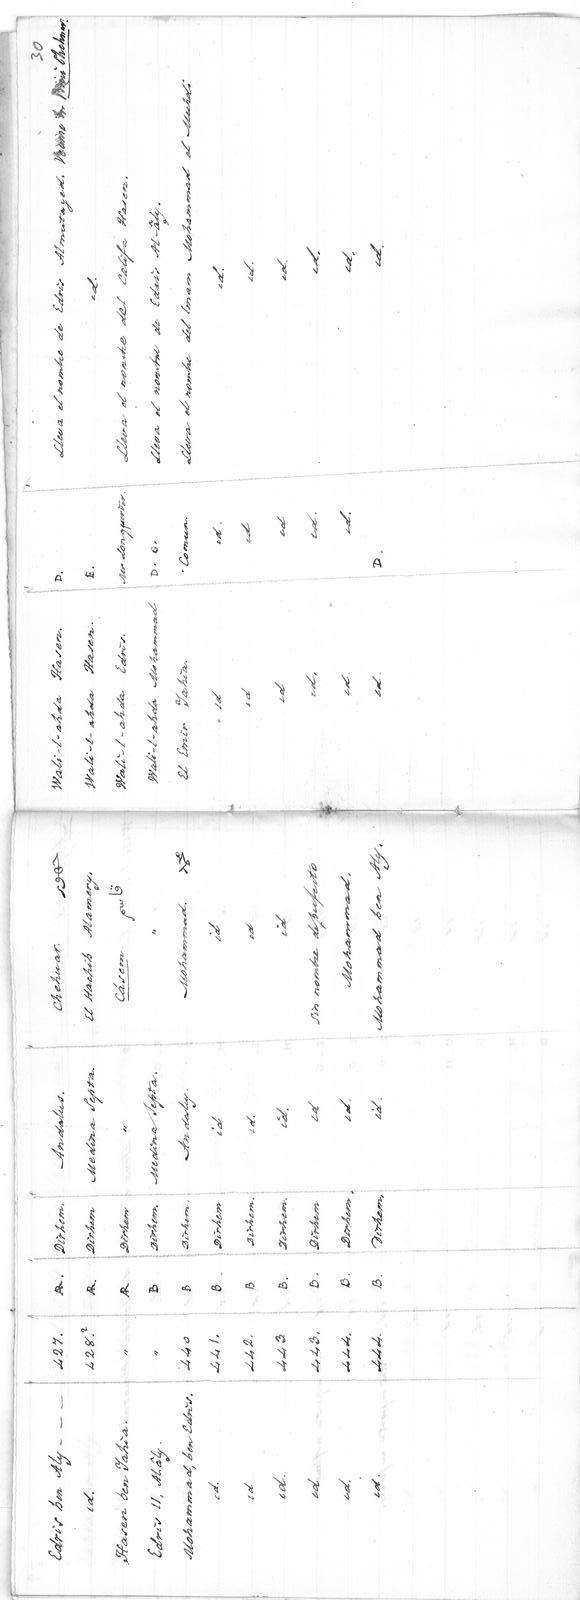 30
Edris ben Aly - - - 427. R. Dirhem. Andalus. Chehwar. Wali-l-ahda Hasen. D. Lleva el nombre de Edris Almutayed. Chehwar.
id. 428.² R. Dirhem Medina Septa. El Hachib Alamery. Wali-l-ahda Hasen. E. id.
Hasen ben Yahia. " R Dirhem " Cásem قاسم Wali-l-ahda Edris. Lleva el nombre del Califa Hasen.
Edris II, Alâly. " B Dirhem. Medina Septa. " Wali-l-ahda Mohammad D. G. Lleva el nombre de Edris Al-âly.
Mohammad, ben Edris. 440 B Dirhem. Andaluy. Mohammad. El Emir Yahia. Comun. Lleva el nombre del Imam Mohammad el Mehdi
id. 441. B. Dirhem id id id. id. id.
id 442. B Dirhem. id. id id id id.
id. 443 B. Dirhem. id. id id id id.
id 443. B. Dirhem id Sin nombre de prefecto id. id. id.
id. 444. B. Dirhem. id. Mohammad. id. id. id.
id. 444. B. Dirhem. id. Mohammad ben Aly. id. D. id.